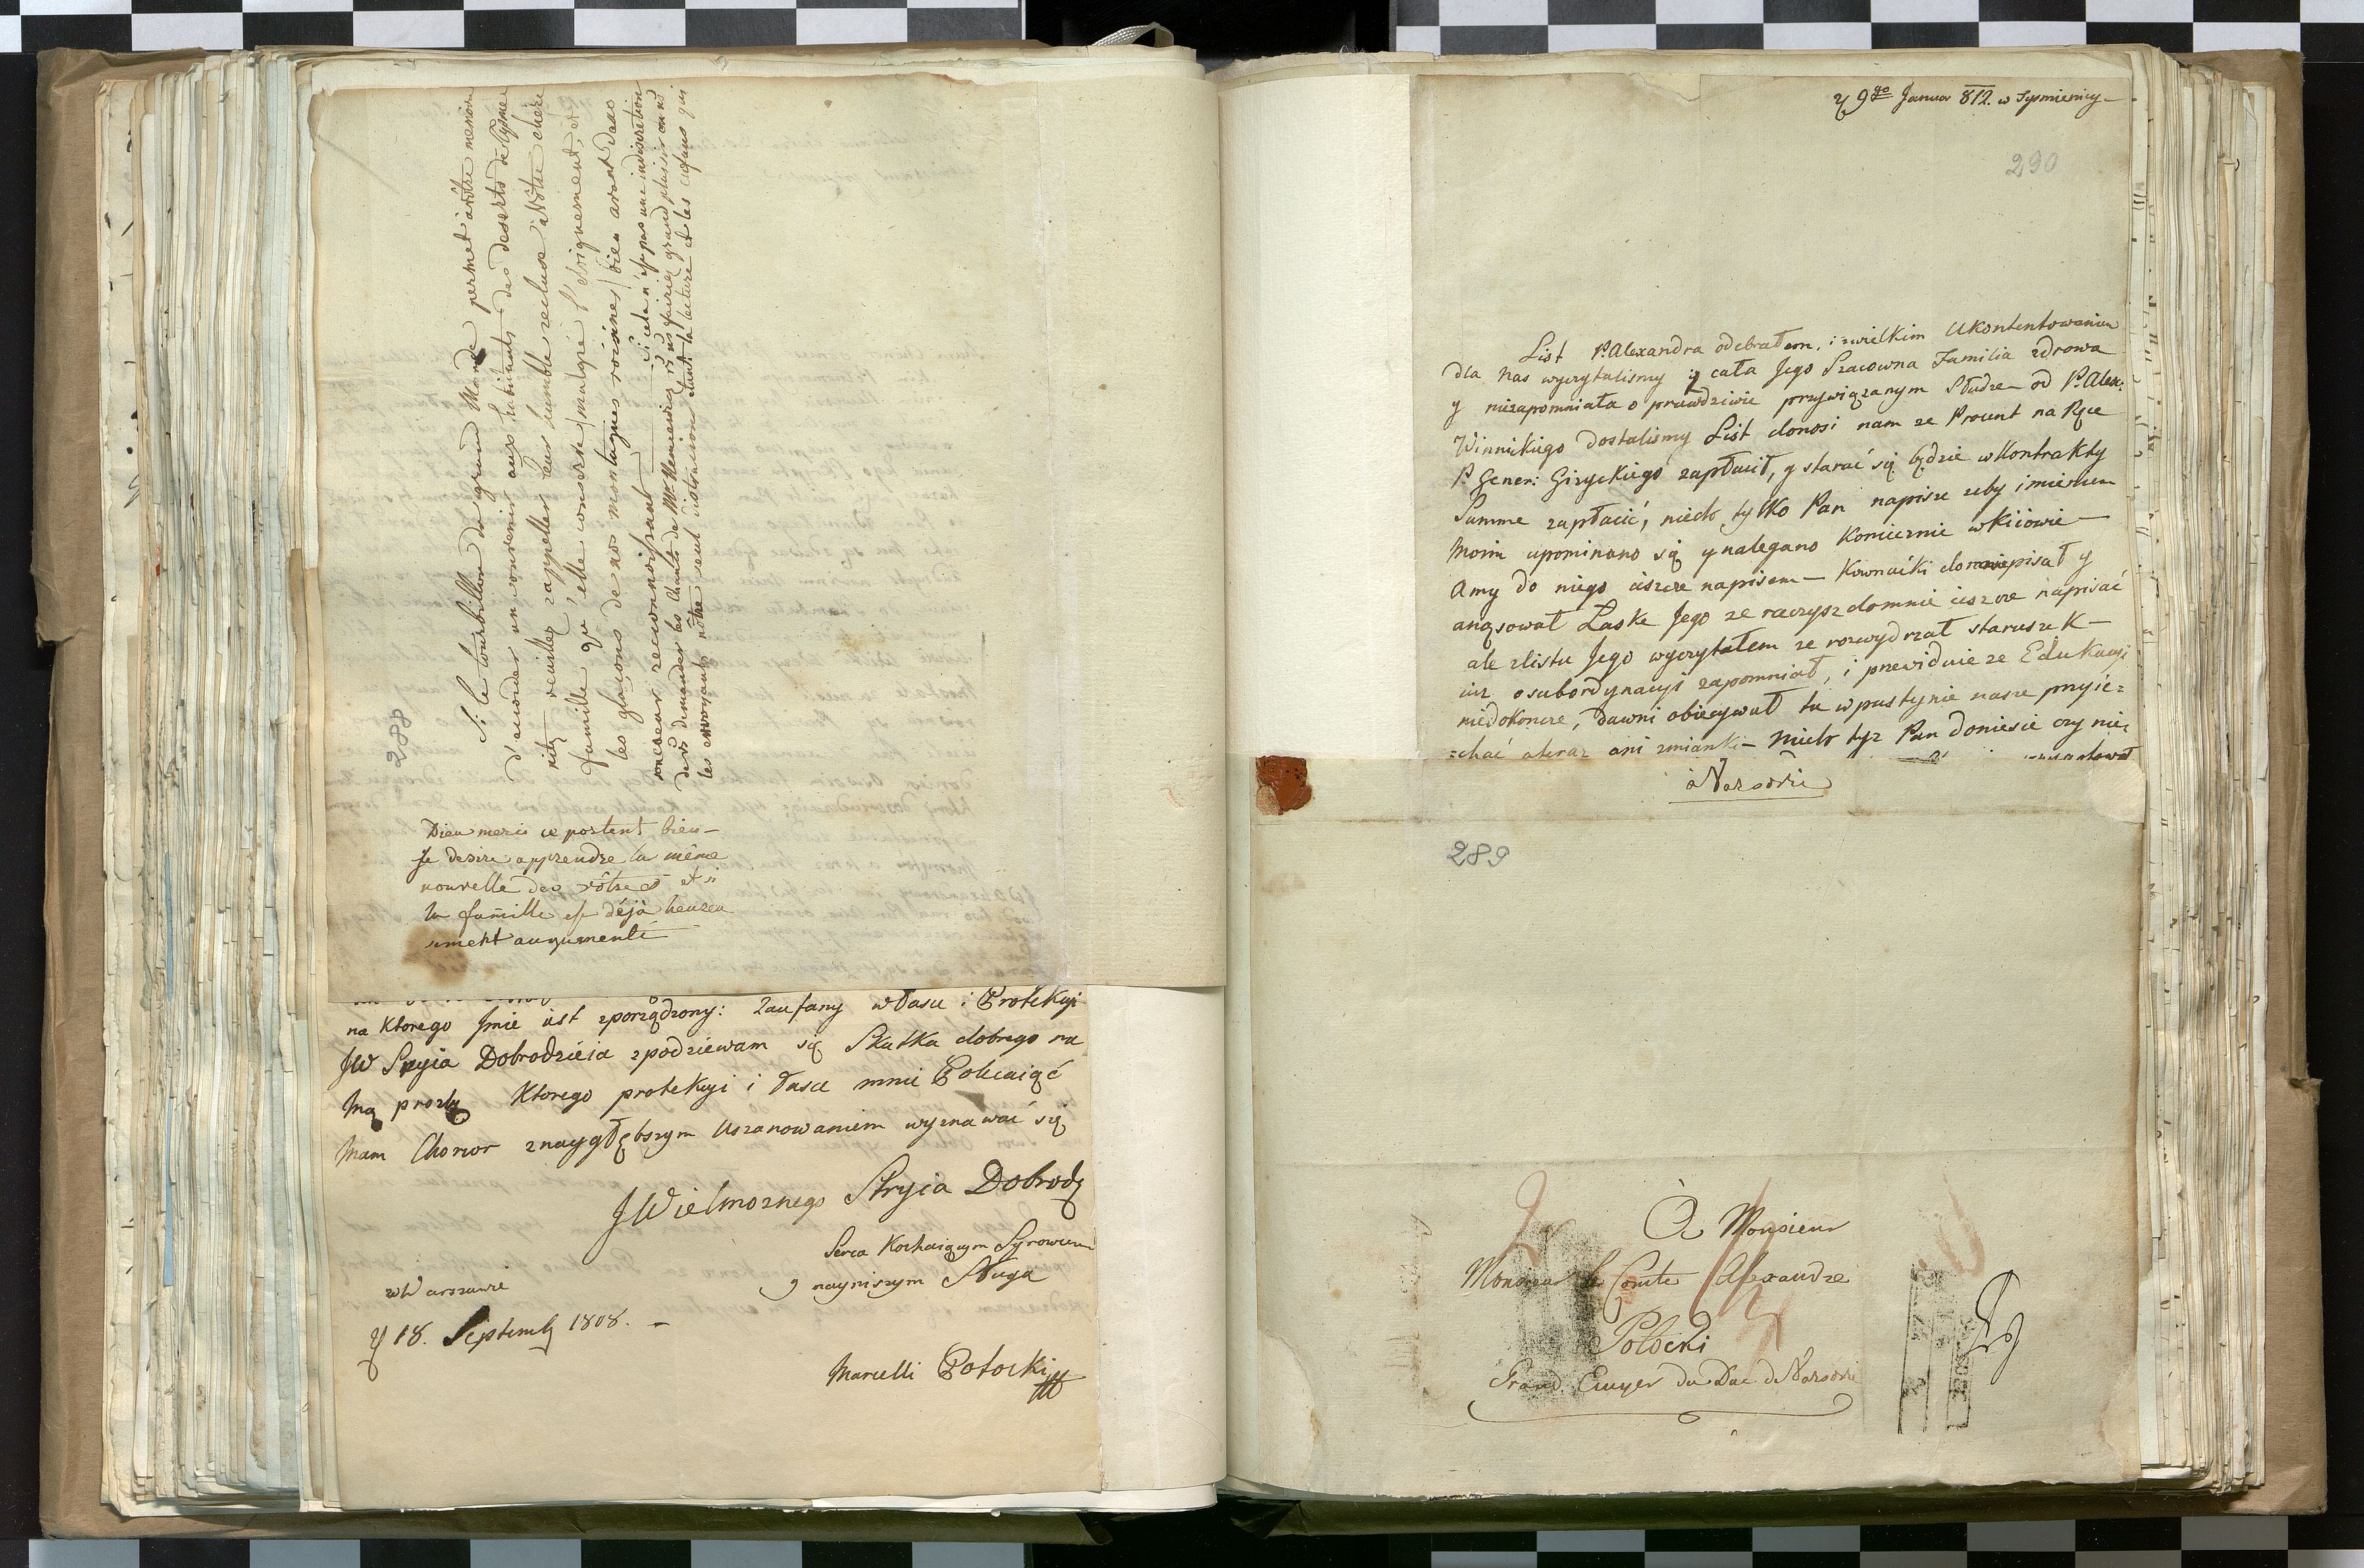 Si le tourbillon du grand Monde permet à vôtre memoire
d'accorder un souvenir aux habitants des deserts de Tysme
nitz veuillez rappeller leur humble recluse a Vôtre chère
famille qu'elle conserve /malgré l'éloignement, et
les glaçons de nos montagnes voisines/ bien avant dans
son coeur reconnoissant — Si cela n'est pas une indiscretion
de vs demander les chants de Mr Niemcewicz vs ns fairiez grand plaisir en ns
les envoyants nôtre seul distraction etant la lecture et les enfans qui
288
Dieu merci ce portent bien —
Je desire apprendre la même
nouvelle des vôtres et si
la famille est déjà heureu
sement augumenté
na ktorego Jmie iest zporządzony: Zaufany w Łasce i Protekcyi
JW Stryia Dobrodzieia zpodziewam się Skutku dobrego na
Mą prozbę Ktorego protekcyi i łasce mnie Polecaiąć
Mam Chonor znaygłębszym Uszanowaniem wyznawać się
JWielmoznego Stryia Dobrodz
Serca Kochaiącym Synowcem
y nayniszym Sługa
w Warszawie
D 18. Septemb 1808. —
Marcelli Potocki
D 9go Januar 812. w Tysmienicy —
290
List P. Alexandra odebrałem, i zwielkim Ukontentowaniem
dla nas wyczytalismy iż cała Jego Szacowna Familia zdrowa
y niezapomniała o prawdziwie przywiązanym Słudze — od P. Alex:
Winnickiego dostalismy List donosi nam ze Procent na Ręce
P. Gener: Gizyckiego zapłacił, y starać się będzie w Kontrakty
Summe zapłacić, niech tylko Pan napisze zeby imieniem
Moim upominano się y nalegano Koniecznie w Kiiowie —
Amy do niego ieszcze napisem — Kownacki do mnie pisał y
anąsował Laske Jego ze raczysz domnie ieszcze napisać
ale zlistu Jego wyczytałem ze rozwydrzał staruszek —
iuz o subordynacyi zapomniał, i przewiduie ze Edukacyi
niedokoncze, dawni obiecywał tu w pustynie nasze przyie=
=chać a teraz ani zmianki — Niech tyz Pan doniesie czy nie
à Varsovie
289
À Monsieur
Monsieur le Comte Alexandre
Potocki
Grand Ecuyer du Duc d Varsovie